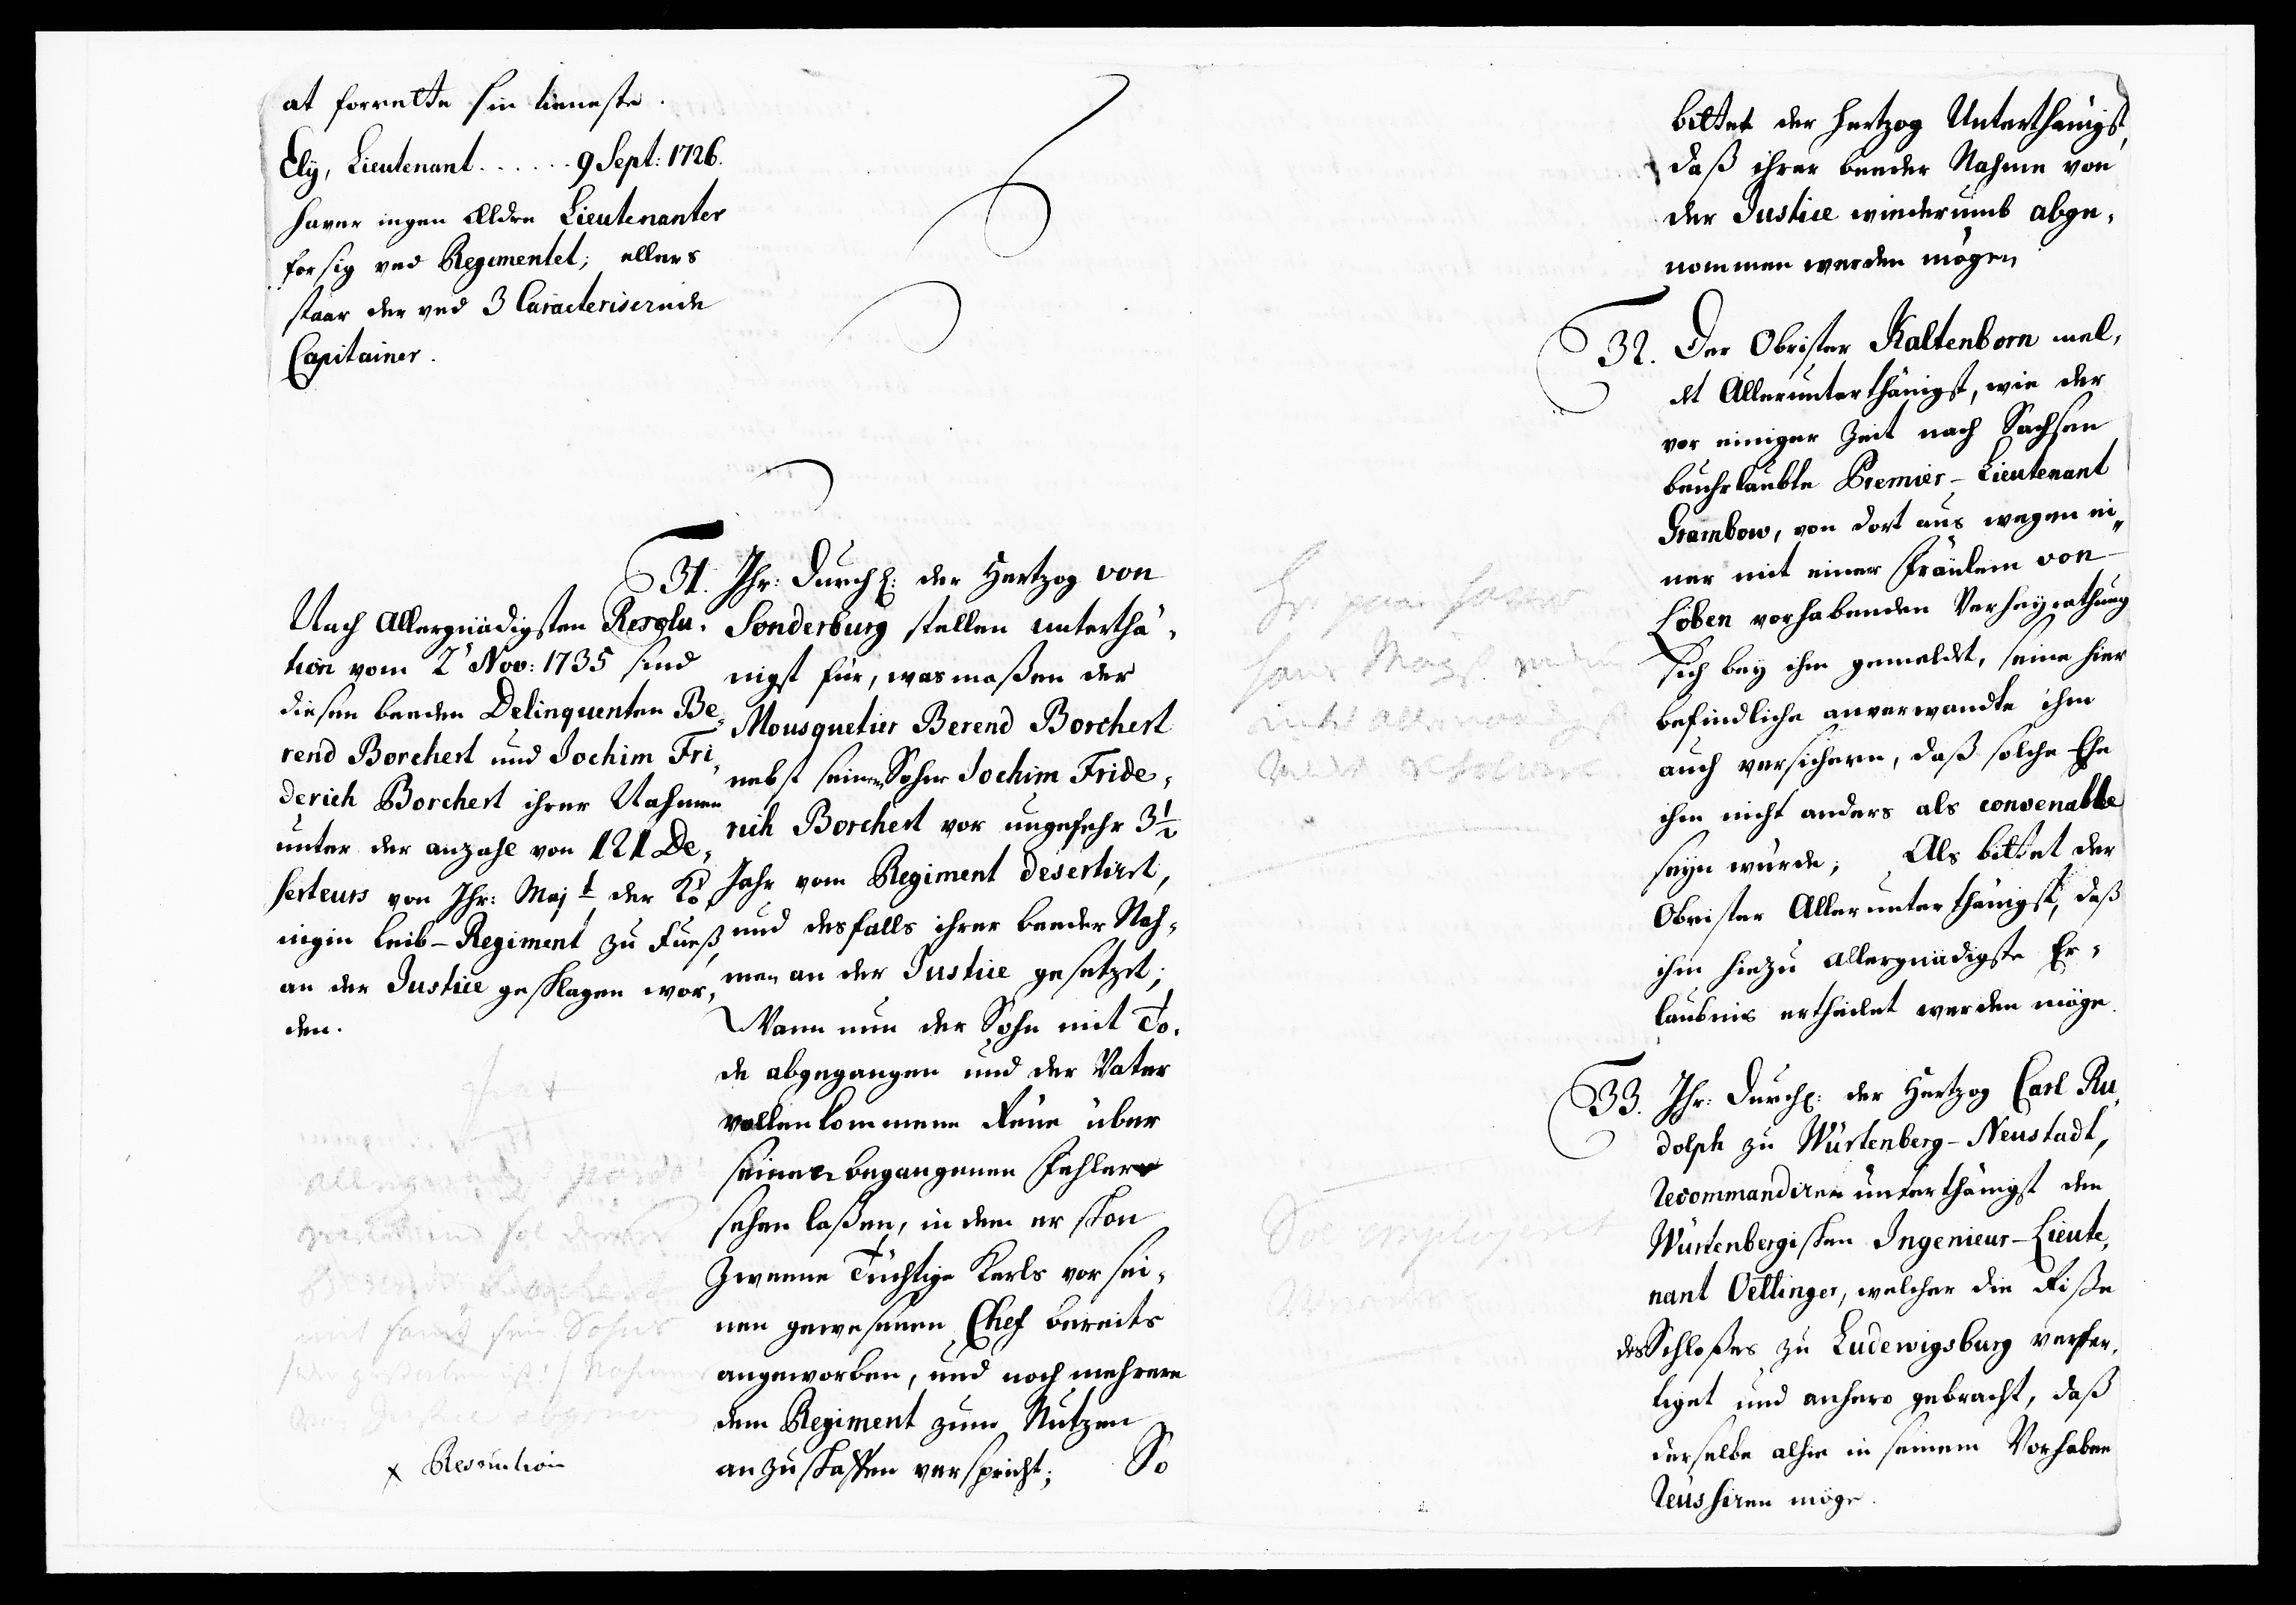 at forrette sin tieneste.
Ely, Lieutenant . . . . . . 9 Sept: 1726.
haver ingen Ældre Lieutenanter
for sig ved Regimentet; ellers
staar der ved 3 Caracteriserede
Capitainer.
Nach Allergnädigsten Resolu-
tion vom 2t Nov: 1735 sind
diesen beeden Delinquenten Be-
rend Borchert und Jochim Fri-
derich Borchert ihrer Nahmen
unter der anzahl von 121 De-
serteurs von Ihr: Majt der Kö-
nigin Leib-Regiment zu Fueß,
an der Justice geschlagen wor-
den.
x Resolution
31. Ihr: Durchl: der Hertzog von
Sonderburg stellen unterthä-
nigst für, was maßen der
Mousquetier Berend Borchert
nebst seinen Sohn Jochim Fride-
rich Borchert vor ungefehr 3½
Jahr vom Regiment desertirt,
und desfalls ihrer beeder Nah-
men an der Justice gesetzet;
Wann nun der Sohn mit To-
de abgegangen und der Vater
vollenkommene Reüe über
seinen begangenen Fehler
sehen laßen, in dem er schon
Zweene Tüchtige Kerls vor sei-
nen gewesenen Chef bereits
angeworben, und noch mehrere
dem Regiment zum Nutzen
anzuschaffen verspricht; So
bittet der Hertzog Unterthänigst,
daß ihrer beeder Nahme von
der Justice wiederumb abge-
nommen werden mögen
Sol employeret
32. Der Obrister Kaltenborn mel-
det Allerunterthänigst, wie der
vor einiger Zeit nach Sachsen
beuhrlaubte Premier-Lieutenant
Grambow, von dort aus wegen ei-
ner mit einer Fräulein von
Löben vorhabenden Verheyrathung
sich bey ihm gemeldet, seine hier
befindliche anverwandte ihm
auch versichern, daß solche Ehe
ihm nicht anders als convenable
seyn würde; Als bittet der
Obrister Allerunterthänigst, daß
ihm hiezu allergnädigste Er-
laubnis ertheilet werden möge.
33. Ihr: Durchl: der Hertzog Carl Ru-
dolph zu Würtenberg-Neustadt,
recommandiren unterthänigst den
Würtenbergischen Ingenieur-Lieute-
nant Oettinger, welcher die Riße
des Schloßes zu Ludewigsburg verfer-
tiget und anhero gebracht, daß
derselbe alhie in seinem Vorhaben
reussiren möge.